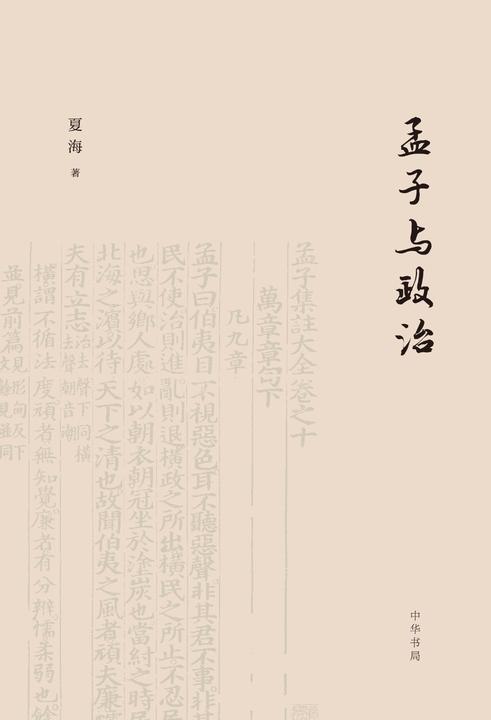 孟子与政治
夏海 著
中华书局
孟子集註大全卷之十
萬章章句下
凡九章
孟子曰伯夷目不視惡色耳不聽惡聲非其君不事非其
民不使治則進亂則退橫政之所出橫民之所止不忍居
也思與鄉人處如以朝衣朝冠坐於塗炭也當紂之時居
北海之濱以待天下之清也故聞伯夷之風者頑夫廉懦
夫有立志治去聲下同橫
去聲朝音潮
橫謂不循法度頑者無知覺廉者有分辨懦柔弱也餘
並見前篇見形甸反下
文餘見並同